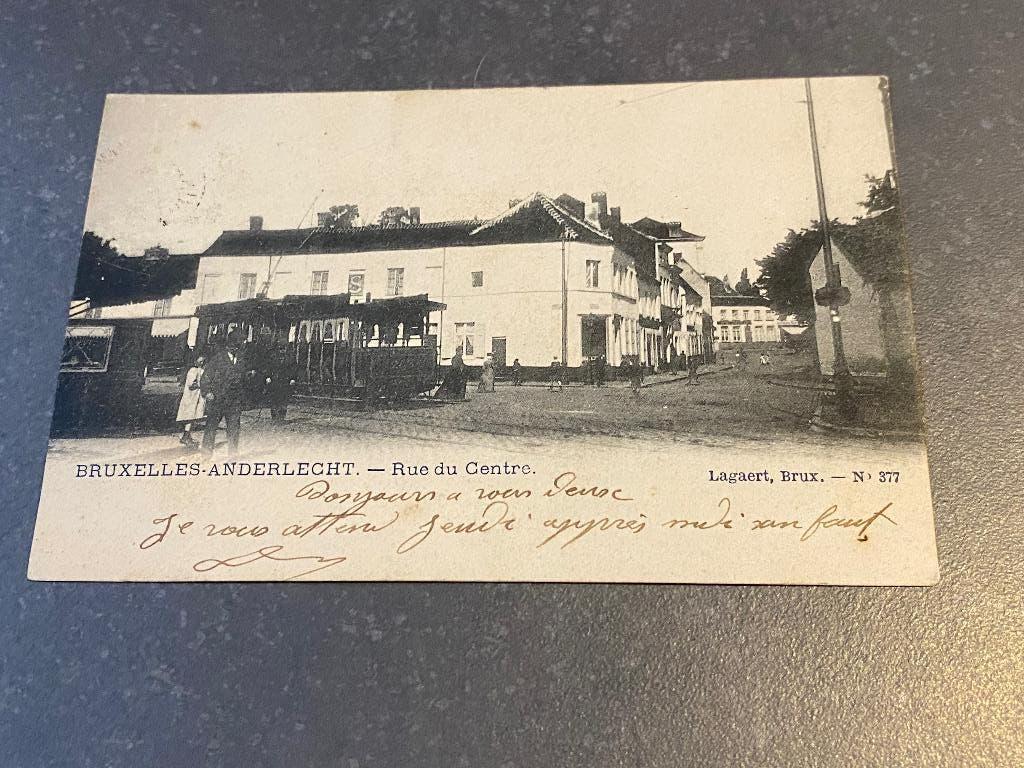 S
BRUXELLES-ANDERLECHT. — Rue du Centre.
Lagaert, Brux. — No 377
Bonjours a vous deux
Je vous attend jeudi apprès midi san faut